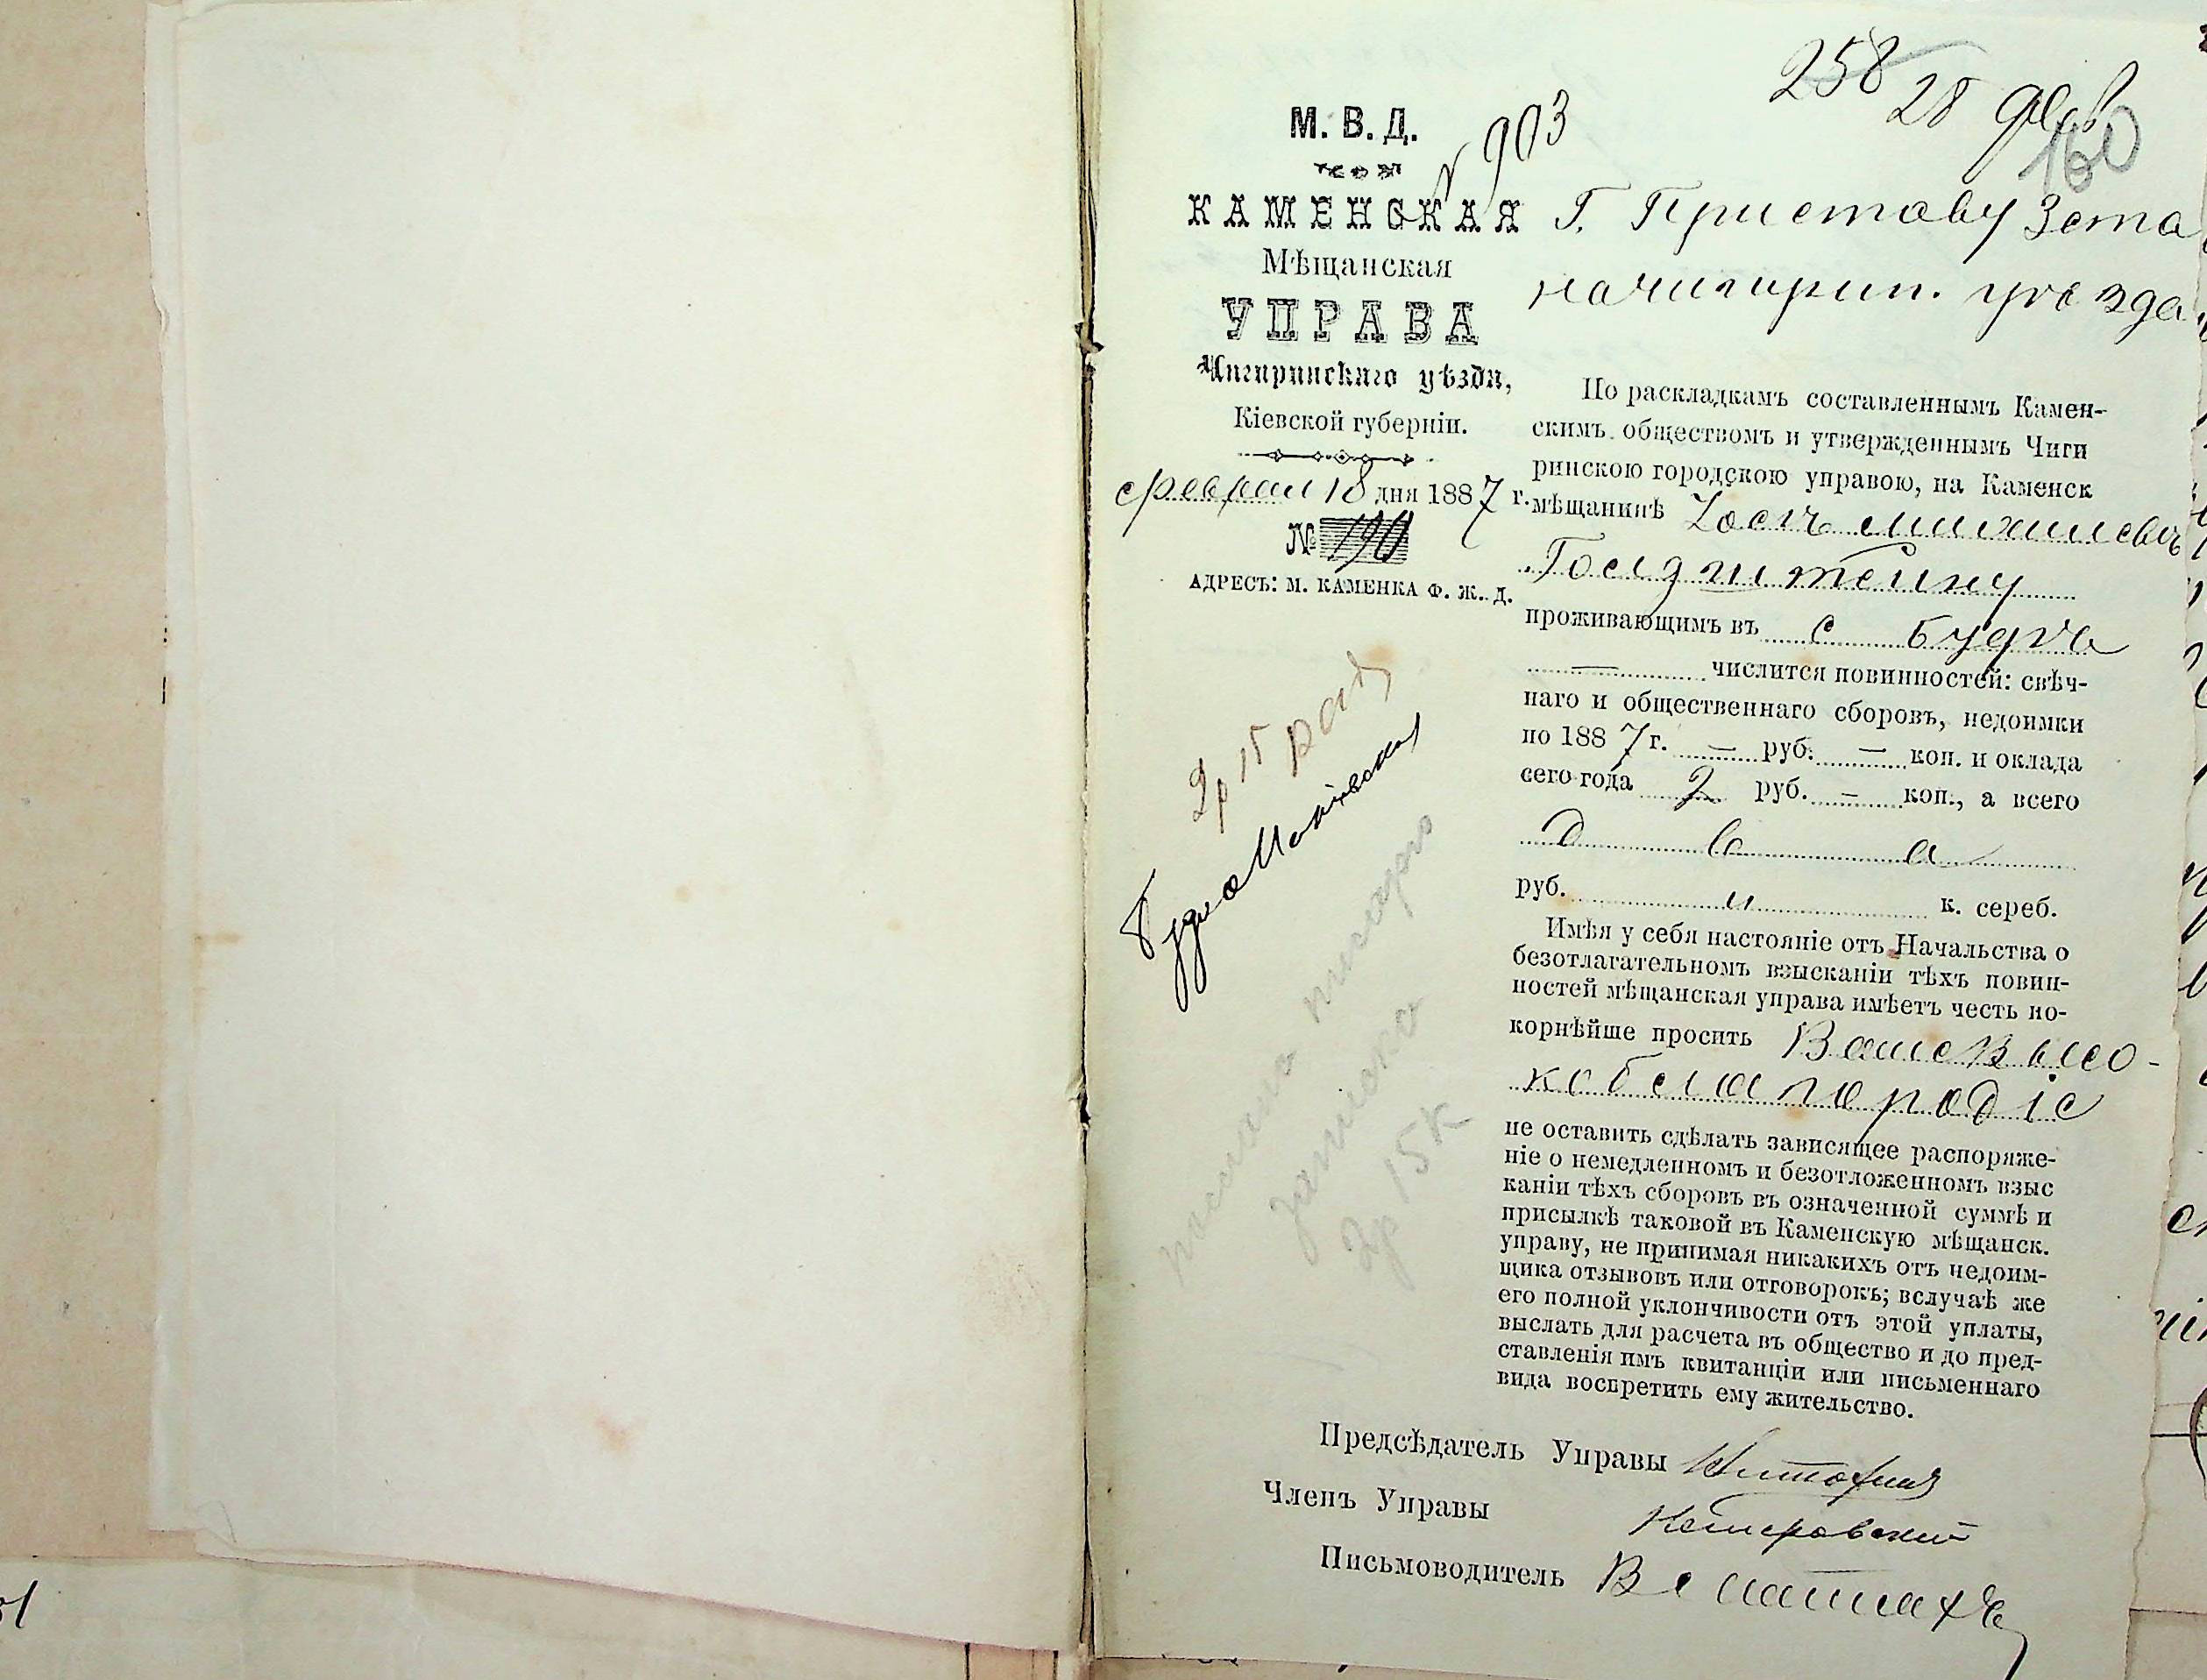 258
28 фев.
160
№ 903
М. В. Д.
КАМЕНСКАЯ
Мѣщанская
УПРАВА
Чигиринскаго уѣзда,
Кіевской губерніи.
феврал 18 дня 1887 г.
№ 190
АДРЕСЪ: М. КАМЕНКА Ф. Ж. Д.
2р 15
писаго
2р 15 к
Г. Приставу 3 ста
на чигирин. уѣзда
По раскладкамъ составленнымъ Камен-
скимъ обществомъ и утвержденнымъ Чиги
ринскою городскою управою, на Каменск
мѣщанинѣ
Гольдштейну
проживающимъ въ с Будѣ
— числится повинностей: свѣч-
наго и общественнаго сборовъ, недоимки
по 1887 г. — руб. — коп. и оклада
сего года 2 руб. — коп., а всего
Два
руб. и к. сереб.
Имѣя у себя настояніе отъ Начальства о
безотлагательномъ взысканіи тѣхъ повин-
ностей мѣщанская управа имѣетъ честь по-
корнѣйше просить Ваше Высо-
коблагородіе
не оставить сдѣлать зависящее распоряже-
ніе о немедленномъ и безотложенномъ взыс
каніи тѣхъ сборовъ въ означенной суммѣ и
присылкѣ таковой въ Каменскую мѣщанск.
управу, не принимая никакихъ отъ недоим-
щика отзывовъ или отговорокъ; вслучаѣ же
его полной уклончивости отъ этой уплаты,
выслать для расчета въ общество и до пред-
ставленія имъ квитанціи или письменнаго
вида воспретить ему жительство.
Предсѣдатель Управы
Членъ Управы
Письмоводитель